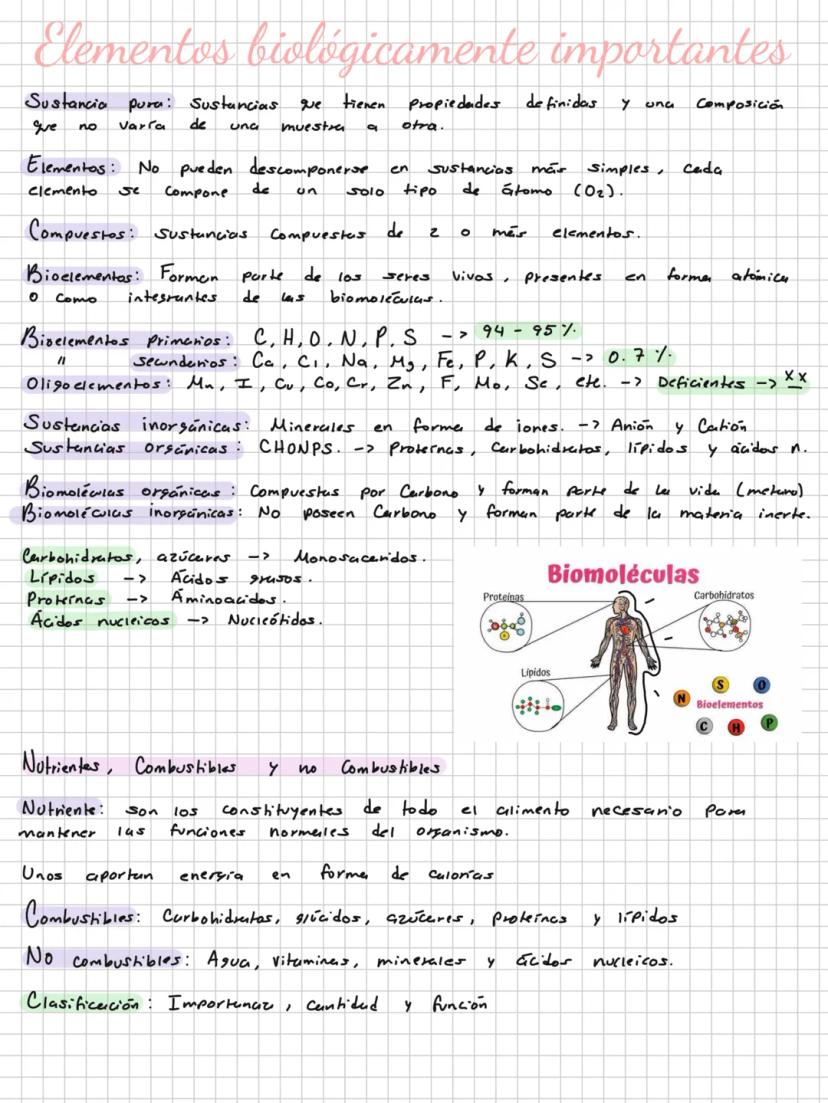 Elementos biológicamente importantes
Sustancia pura: Sustancias que tienen propiedades definidas y una composición
que no varía de una muestra a otra.
Elementos: No pueden descomponerse en sustancias más simples, cada
elemento se compone de un solo tipo de átomo (O2).
Compuestos: Sustancias compuestas de 2 o más elementos.
Bioelementos: Forman parte de los seres vivos, presentes en forma atómica
o como integrantes de las biomoléculas.
Bioelementos primarios: C, H, O, N, P, S -> 94 - 95 %.
" secundarios: Ca, Cl, Na, Mg, Fe, P, K, S -> 0.7 %.
Oligoelementos: Mn, I, Cu, Co, Cr, Zn, F, Mo, Se, etc. -> Deficientes -> xx
Sustancias inorgánicas: Minerales en forma de iones. -> Anión y Catión
Sustancias orgánicas: CHONPS. -> Proteínas, Carbohidratos, lípidos y ácidos n.
Biomoléculas orgánicas: Compuestas por Carbono y forman parte de la vida (metano)
Biomoléculas inorgánicas: No poseen Carbono y forman parte de la materia inerte.
Carbohidratos, azúcares -> Monosacaridos.
Lípidos -> Ácidos grasos.
Proteínas -> Aminoacidos.
Ácidos nucleicos -> Nucleótidos.
Biomoléculas
Proteínas
Carbohidratos
Lípidos
N S O
Bioelementos
C H P
Nutrientes, Combustibles y no Combustibles
Nutriente: son los constituyentes de todo el alimento necesario para
mantener las funciones normales del organismo.
Unos aportan energía en forma de calorías
Combustibles: Carbohidratos, glúcidos, azúcares, proteínas y lípidos
No combustibles: Agua, vitaminas, minerales y ácidos nucleicos.
Clasificación: Importanaz, cantidad y función